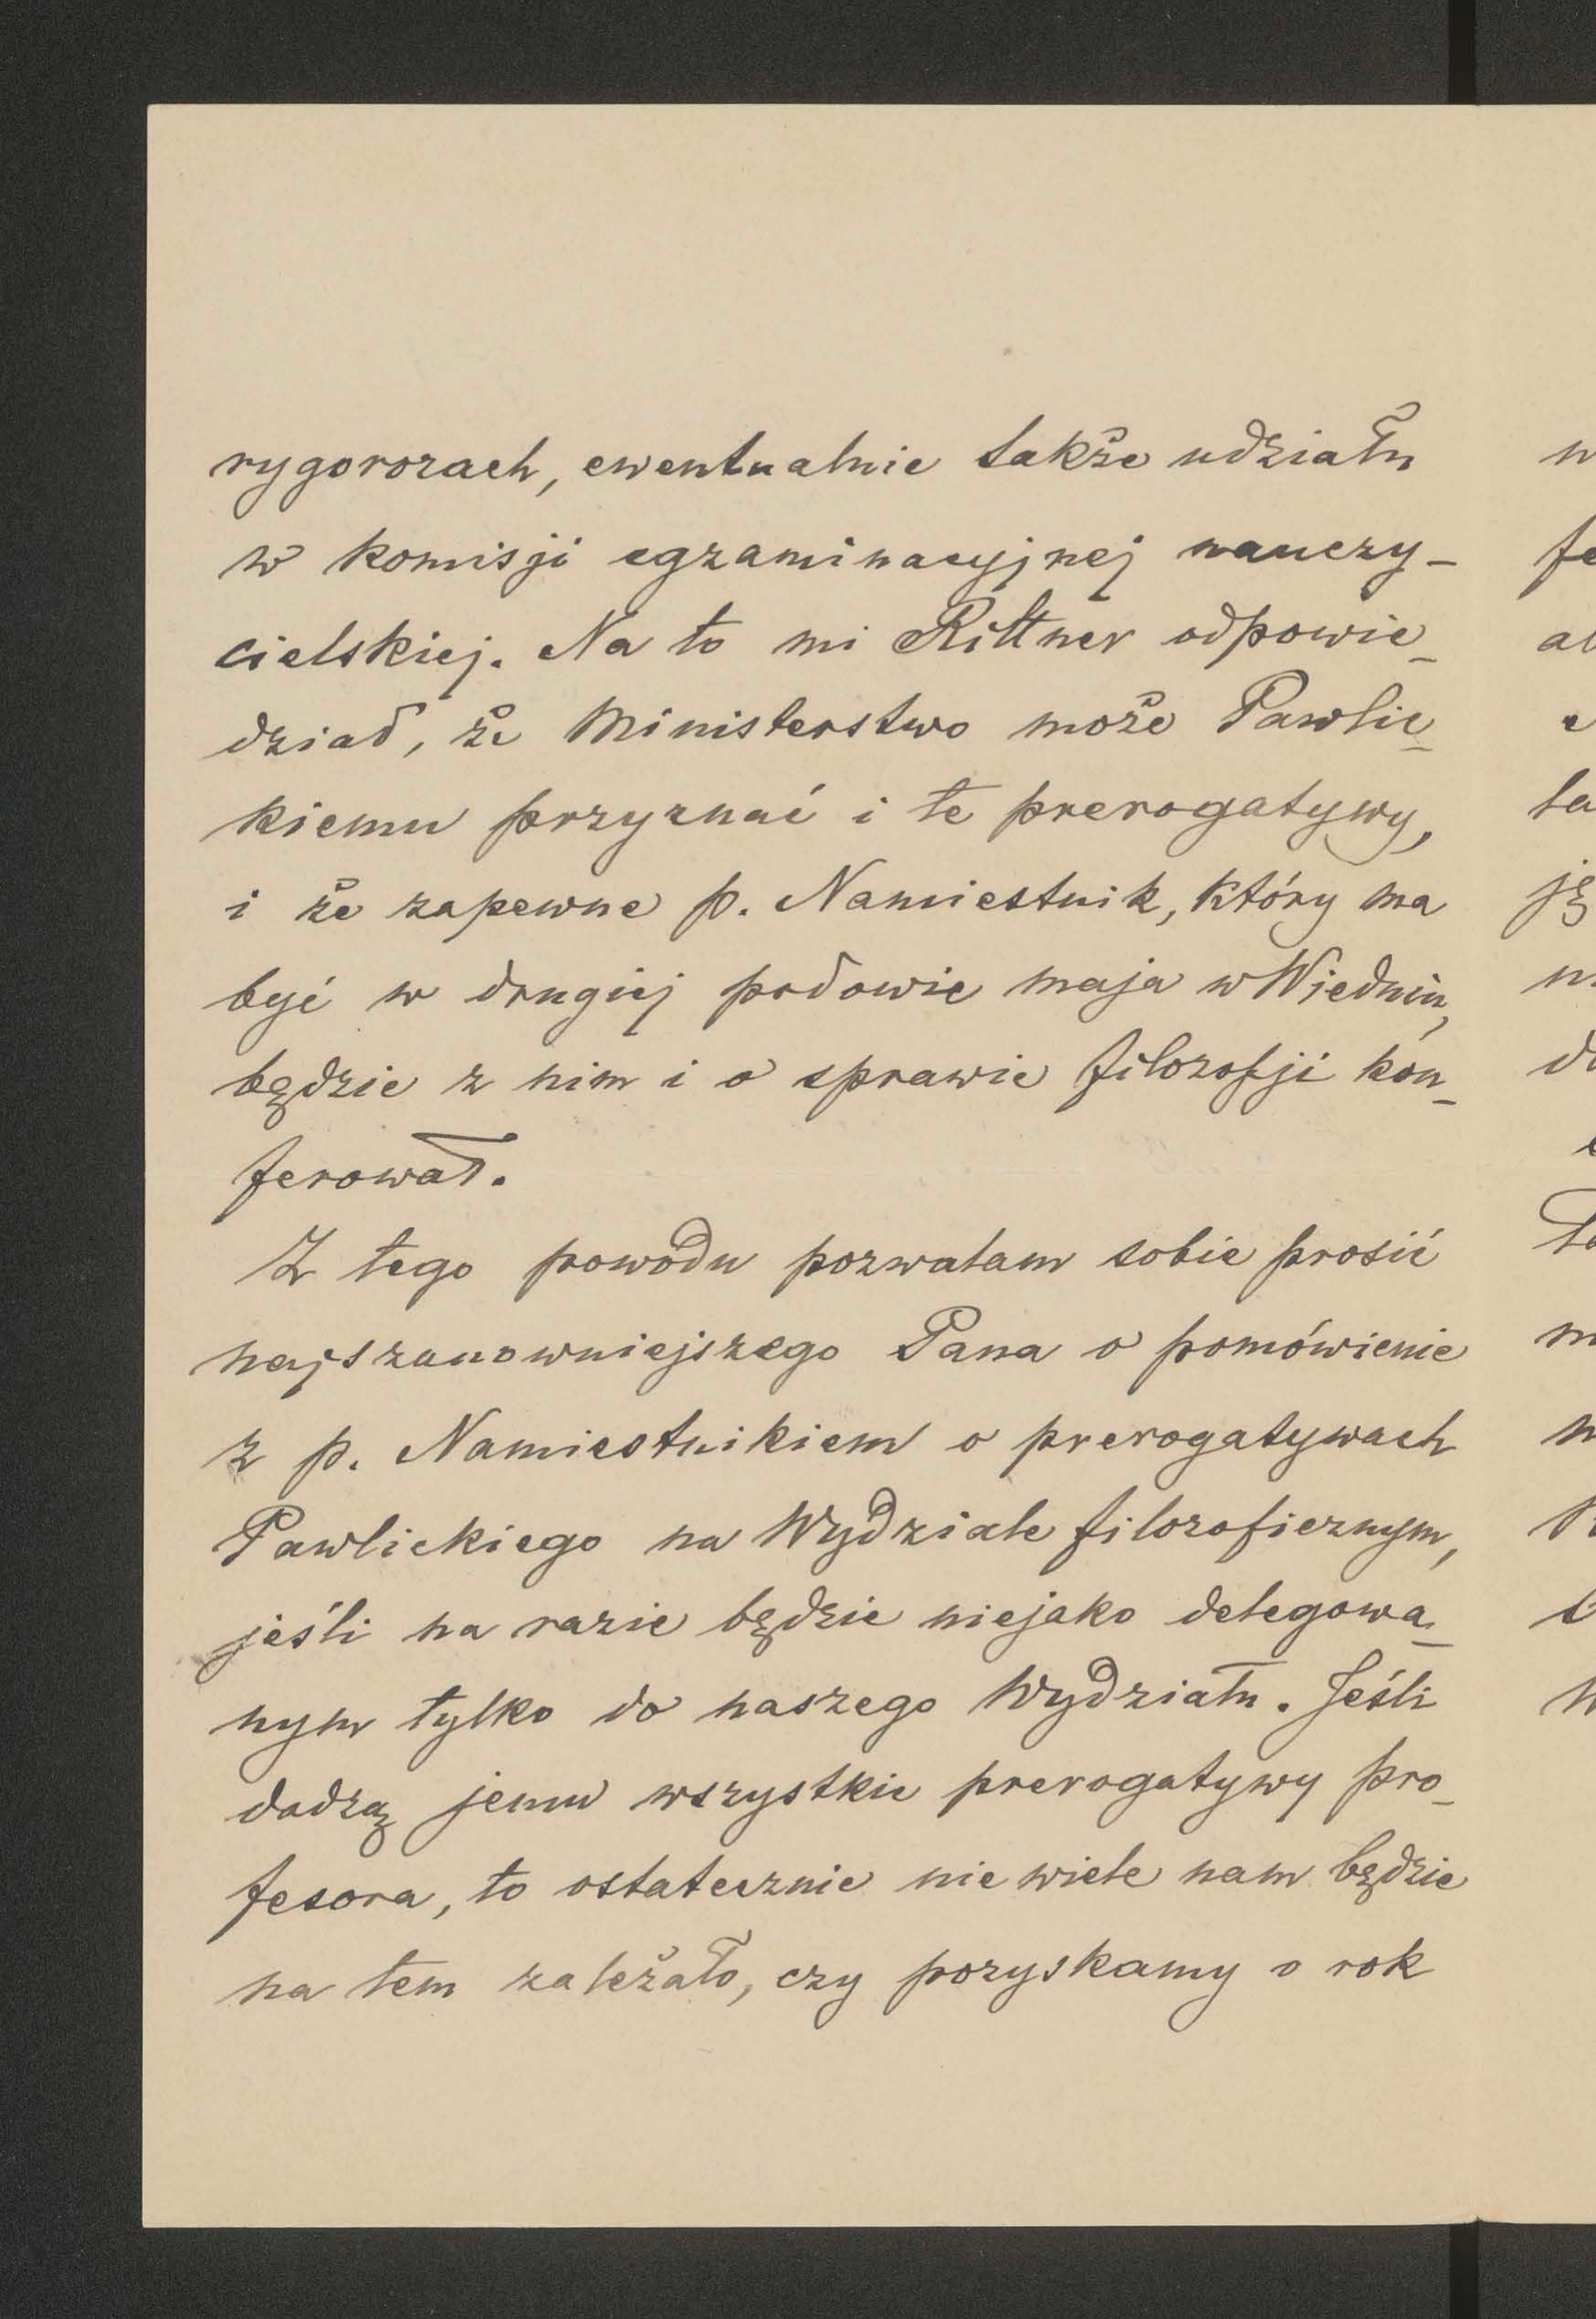 rygorozach, ewentualnie także udziału
w komisji egzaminacyjnej nauczy-
cielskiej. Na to mi Rittner odpowie-
dział, że Ministerstwo może Pawlic-
kiemu przyznać i te prerogatywy,
i że zapewne p. Namiestnik, który ma
być w drugiej połowie maja w Wiedniu,
będzie z nim i o sprawie filozofji kon-
ferował.
Z tego powodu pozwalam sobie prosić
najszanowniejszego Pana o pomówienie
z p. Namiestnikiem o prerogatywach
Pawlickiego na Wydziale filozoficznym,
jeśli na razie będzie niejako delegowa-
nym tylko do naszego Wydziału. Jeśli
dadzą jemu wszystkie prerogatywy pro-
fesora, to ostatecznie nie wiele nam będzie
na tem zależało, czy pozyskamy o rok